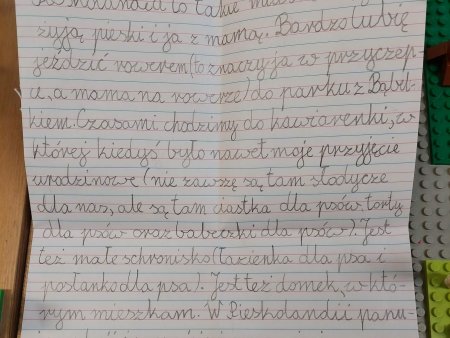 to takie
żyją pieski i ja z mamą. Bardzo lubię
jeździć rowerem (to znaczy ja w przyczep-
ce, a mama na rowerze) do parku z Bąbel-
kiem. Czasami chodzimy do kawiarenki, w
której kiedyś było nawet moje przyjęcie
urodzinowe (nie zawsze są tam słodycze
dla nas, ale są tam ciastka dla psów, torty
dla psów oraz babeczki dla psów). Jest
też małe schronisko (łazienka dla psa i
posłanko dla psa). Jest też domek, w któ-
rym mieszkam. W Pieskolandii panu-